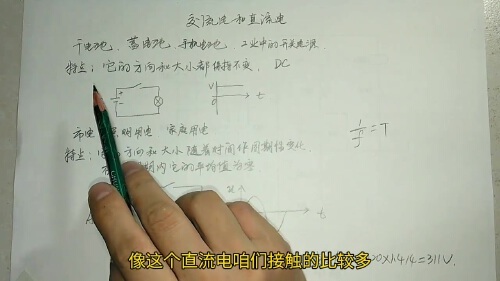 交流电和直流电
干电池、蓄电池、手机电池、工业中的开关电源
特点：它的方向和大小都保持不变、DC
V
t
市电 照明用电 家庭用电
1/f = T
特点： 的方向和大小随着时间作周期性变化
期内它的平均值为零
t
×1.414=311V
像这个直流电咱们接触的比较多